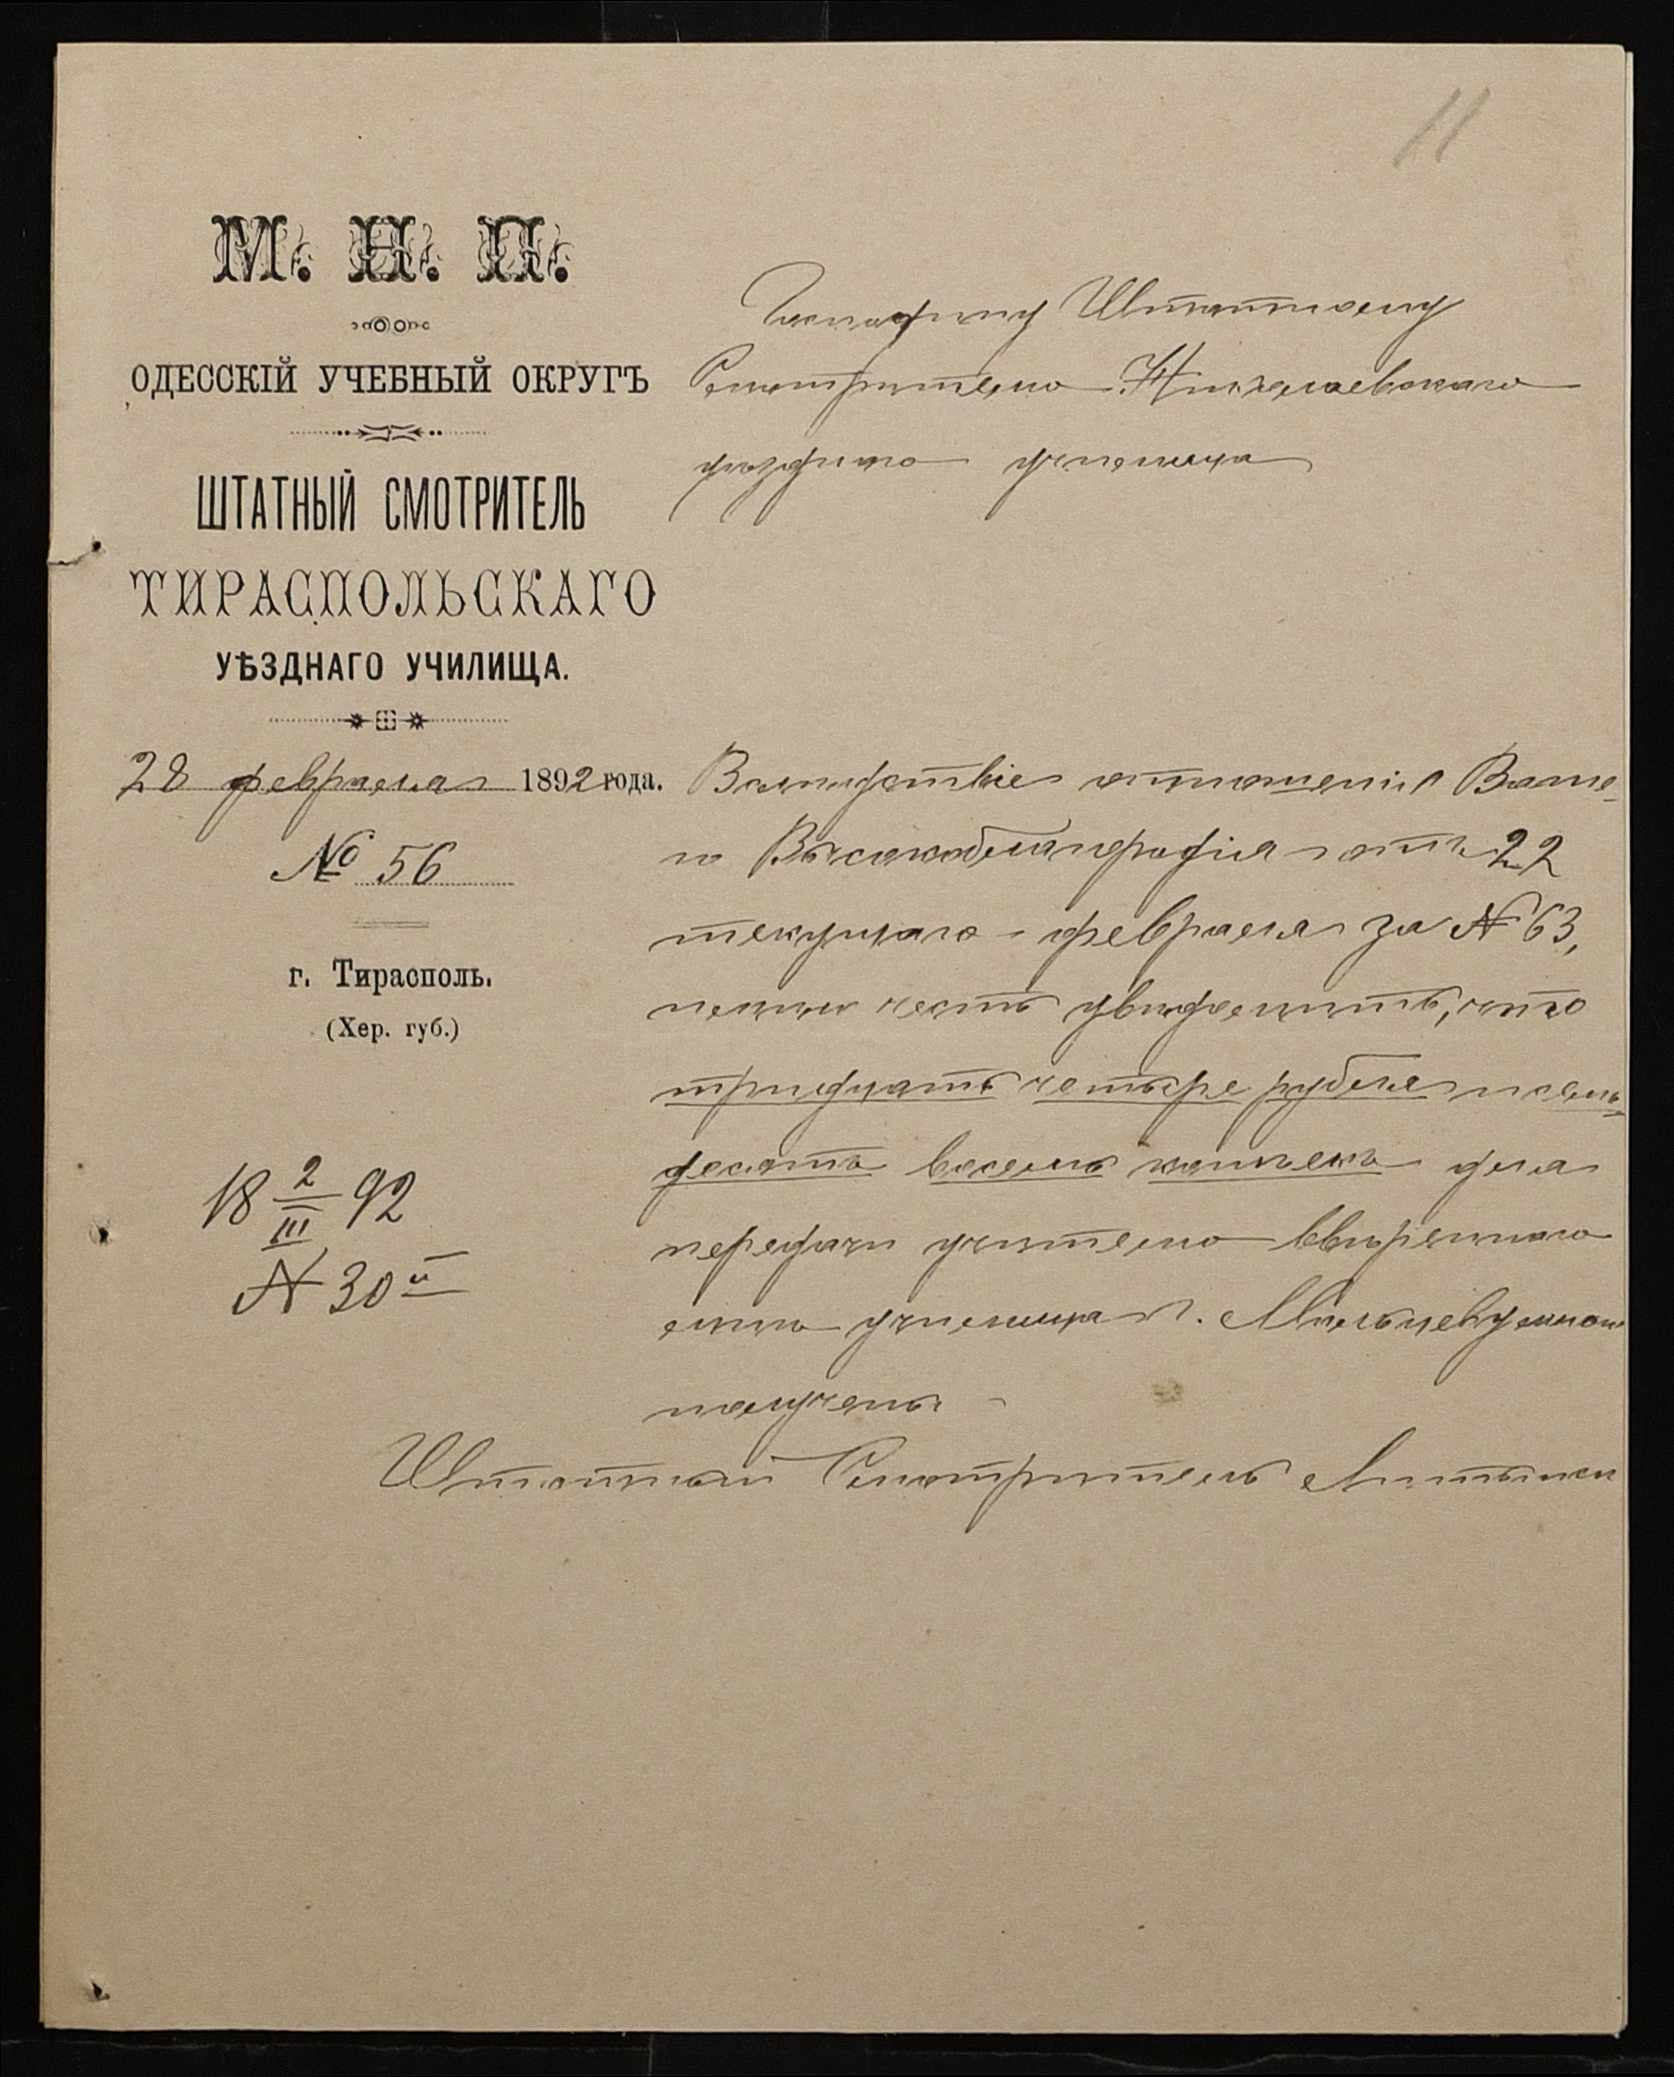 11
М. Н. П.
ОДЕССКІЙ УЧЕБНЫЙ ОКРУГЪ
ШТАТНЫЙ СМОТРИТЕЛЬ
ТИРАСПОЛЬСКАГО
УѢЗДНАГО УЧИЛИЩА.
28 февраля 1892 года.
№ 56
г. Тирасполь.
(Хер. губ.)
18 2/III 92
№ 30
Господину Штатному
Смотрителю Николаевскаго
уѣзднаго училища
Вслѣдствіе отношенія Ваше-
го Высокоблагородія отъ 22
текущаго февраля за № 63,
имѣю честь увѣдомить, что
тридцать четыре рубля и семь-
десятъ восемь копѣекъ для
передачи учителю ввѣреннаго
мнѣ училища г.
получены
Штатный Смотритель